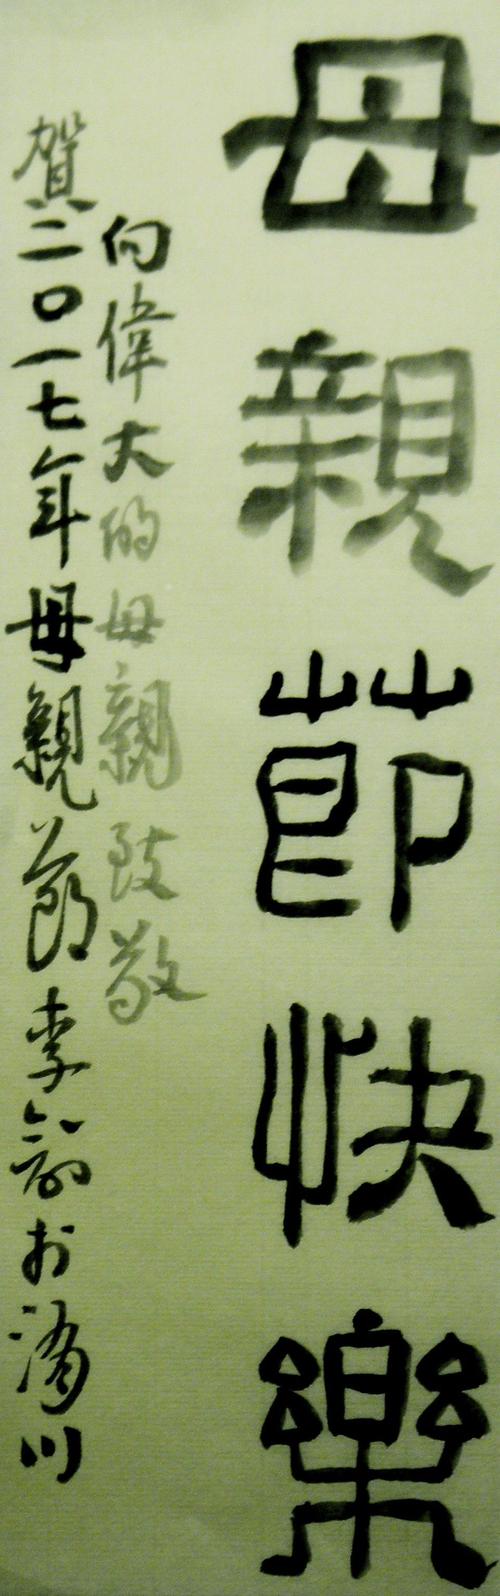 母親節快樂
向偉大的母親致敬
賀二〇一七年母親節李於川